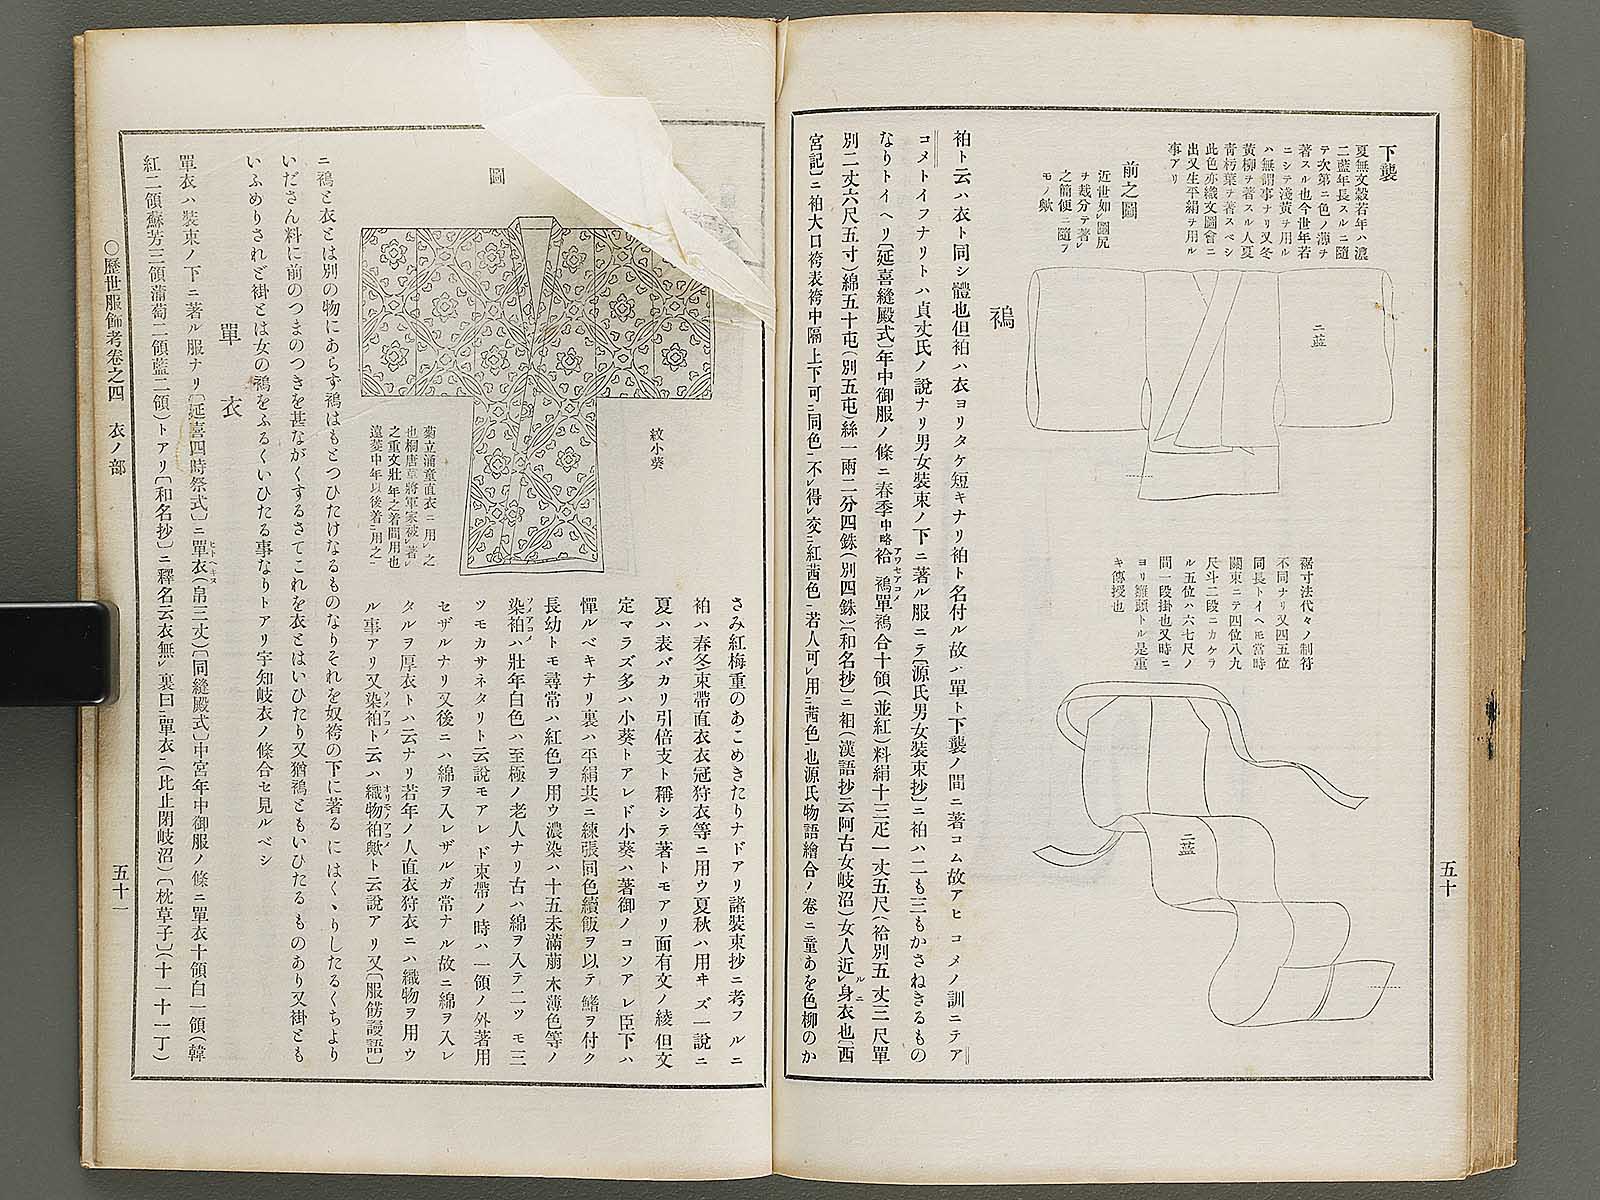 下襲
夏無文縠若年ハ濃
二藍年長スルニ隨
テ次第ニ色ノ薄チ
著スル也今世年若
ニシテ淺黃チ用ル
ハ無謂事ナリ又冬
黃柳チ著スル人夏
青朽葉チ著スベシ
此色亦織文圖會ニ
出又生平絹チ用ル
事アリ
前之圖
近世如㆑圖尻
チ裁分テ著㆑
之簡便ニ隨フ
モノ歟
二藍
裾寸法代々ノ制符
不同ナリ又四五位
同長トイヘ𪜈當時
關東ニテ四位八九
尺斗二段ニカケラ
ル五位ハ六七尺ノ
間一段掛也又時ニ
ヨリ纐頭トル是重
キ傳授也
二藍
褟
袙ト云ハ衣ト同シ體也但袙ハ衣ヨリタケ短キナリ袙ト名付ル故ハ單ト下襲ノ間ニ著コム故アヒコメノ訓ニテア
コメトイフナリトハ貞丈氏ノ說ナリ男女裝束ノ下ニ著ル服ニテ〔源氏男女裝束抄〕ニ袙ハ二も三もかさねきるもの
なりトイヘリ〔延喜縫殿式〕年中御服ノ條ニ春季中略袷褟單褟合十領(並紅)料絹十三疋一丈五尺(袷別五丈三尺單
別二丈六尺五寸)綿五十屯(別五屯)絲一兩二分四銖(別四銖)〔和名抄〕ニ袙(漢語抄云阿古女岐沼)女人近㆑身衣也〔西
宮記〕ニ袙大口袴表袴中隔上下可㆓同色㆒不㆑得㆑交㆓紅茜色㆒若人可㆑用㆓茜色㆒也源氏物語繪合ノ卷ニ童あを色柳のか
五十
圖
紋小葵
菊立涌童直衣ニ用㆑之
也桐唐草將軍家被㆑著㆑
之重文壯年之着間用也
遠菱中年以後着㆓用之㆒
さみ紅梅重のあこめきたりナドアリ諸裝束抄ニ考フルニ
袙ハ春冬束帶直衣衣冠狩衣等ニ用ウ夏秋ハ用キズ一說ニ
夏ハ表バカリ引倍支ト稱シテ著トモアリ面有文ノ綾但文
定マラズ多ハ小葵トアレド小葵ハ著御ノコソアレ臣下ハ
憚ルベキナリ裏ハ平絹共ニ練張同色續飯ヲ以テ鰭ヲ付ク
長幼トモ尋常ハ紅色ヲ用ウ濃染ハ十五未滿萠木薄色等ノ
染袙ハ壯年白色ハ至極ノ老人ナリ古ハ綿ヲ入テ二ツモ三
ツモカサネタリト云說モアレド束帶ノ時ハ一領ノ外著用
セザルナリ又後ニハ綿ヲ入レザルガ常ナル故ニ綿ヲ入レ
タルヲ厚衣トハ云ナリ若年ノ人直衣狩衣ニハ織物ヲ用ウ
ル事アリ又染袙ト云ハ織物袙歟ト云說アリ又〔服餝謾語〕
ニ褟と衣とは別の物にあらす褟はもとつひたけなるものなりそれを奴袴の下に著るにはくゝりしたるくちより
いださん料に前のつまのつきを甚ながくするさてこれを衣とはいひたり又猶褟ともいひたるものあり又褂とも
いふめりされど褂とは女の褟をふるくいひたる事なりトアリ宇知岐衣ノ條合セ見ルベシ
單衣
單衣ハ裝束ノ下ニ著ル服ナリ〔延喜四時祭式〕ニ單衣(帛三丈)〔同縫殿式〕中宮年中御服ノ條ニ單衣十領白一領(韓
紅二領蘇芳三領蒲萄二領藍二領)トアリ〔和名抄〕ニ釋名云衣無㆑裏曰㆓單衣㆒(比止閉岐沼)〔枕草子〕(十一十一丁)
○歷世服飾考卷之四 衣ノ部
五十一